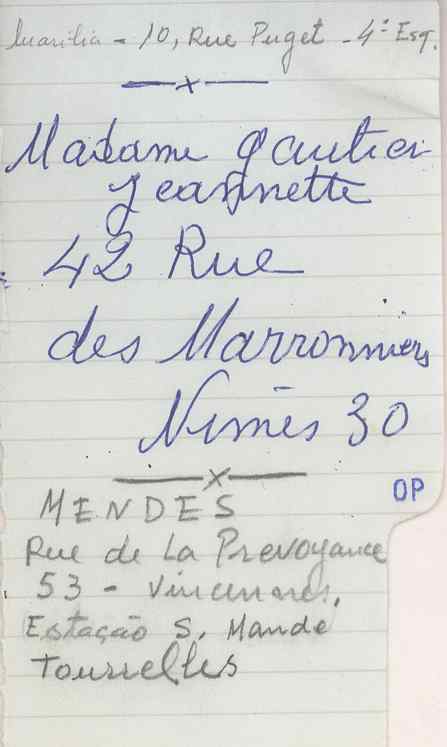 Marilia - 10, Rue Puget - 4º Esq.
x
Madame Gautier
Jeannette
42 Rue
des Marronniers
Nimes 30
x
OP
MENDES
Rue de La Prevoyance
53 - Vincennes,
Estação S. Mande
Tourelles